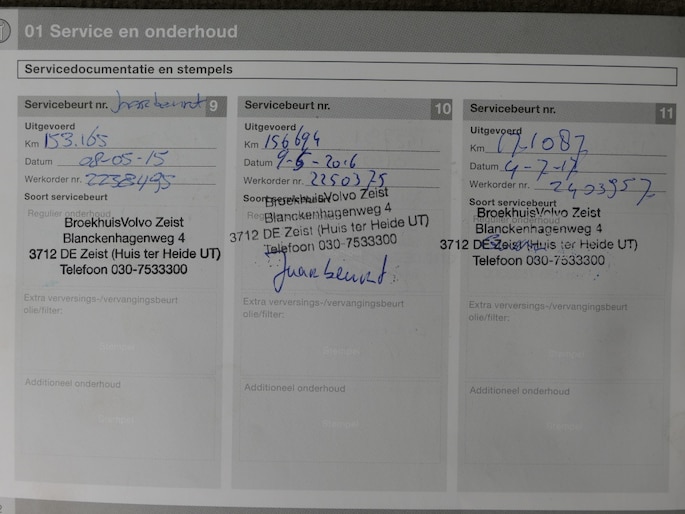 01 Service en onderhoud
Servicedocumentatie en stempels
Servicebeurt nr. Jaarbeurt 9
Uitgevoerd
Km 153.165
Datum 08-05-15
Werkorder nr. 2238495
Soort servicebeurt
Regulier onderhoud
BroekhuisVolvo Zeist
Blanckenhagenweg 4
3712 DE Zeist (Huis ter Heide UT)
Telefoon 030-7533300
Extra verversings-/vervangingsbeurt
olie/filter:
Stempel
Additioneel onderhoud
Stempel
Servicebeurt nr. 10
Uitgevoerd
Km 156694
Datum 9-5-2016
Werkorder nr. 2250375
Soort servicebeurt
BroekhuisVolvo Zeist
Blanckenhagenweg 4
3712 DE Zeist (Huis ter Heide UT)
Telefoon 030-7533300
Jaarbeurt
Extra verversings-/vervangingsbeurt
olie/filter:
Stempel
Additioneel onderhoud
Servicebeurt nr. 11
Uitgevoerd
Km 171087
Datum 4-7-17
Werkorder nr. 2403957
Soort servicebeurt
Regulier onderhoud
BroekhuisVolvo Zeist
Blanckenhagenweg 4
3712 DE Zeist (Huis ter Heide UT)
Telefoon 030-7533300
Extra verversings-/vervangingsbeurt
olie/filter:
Stempel
Additioneel onderhoud